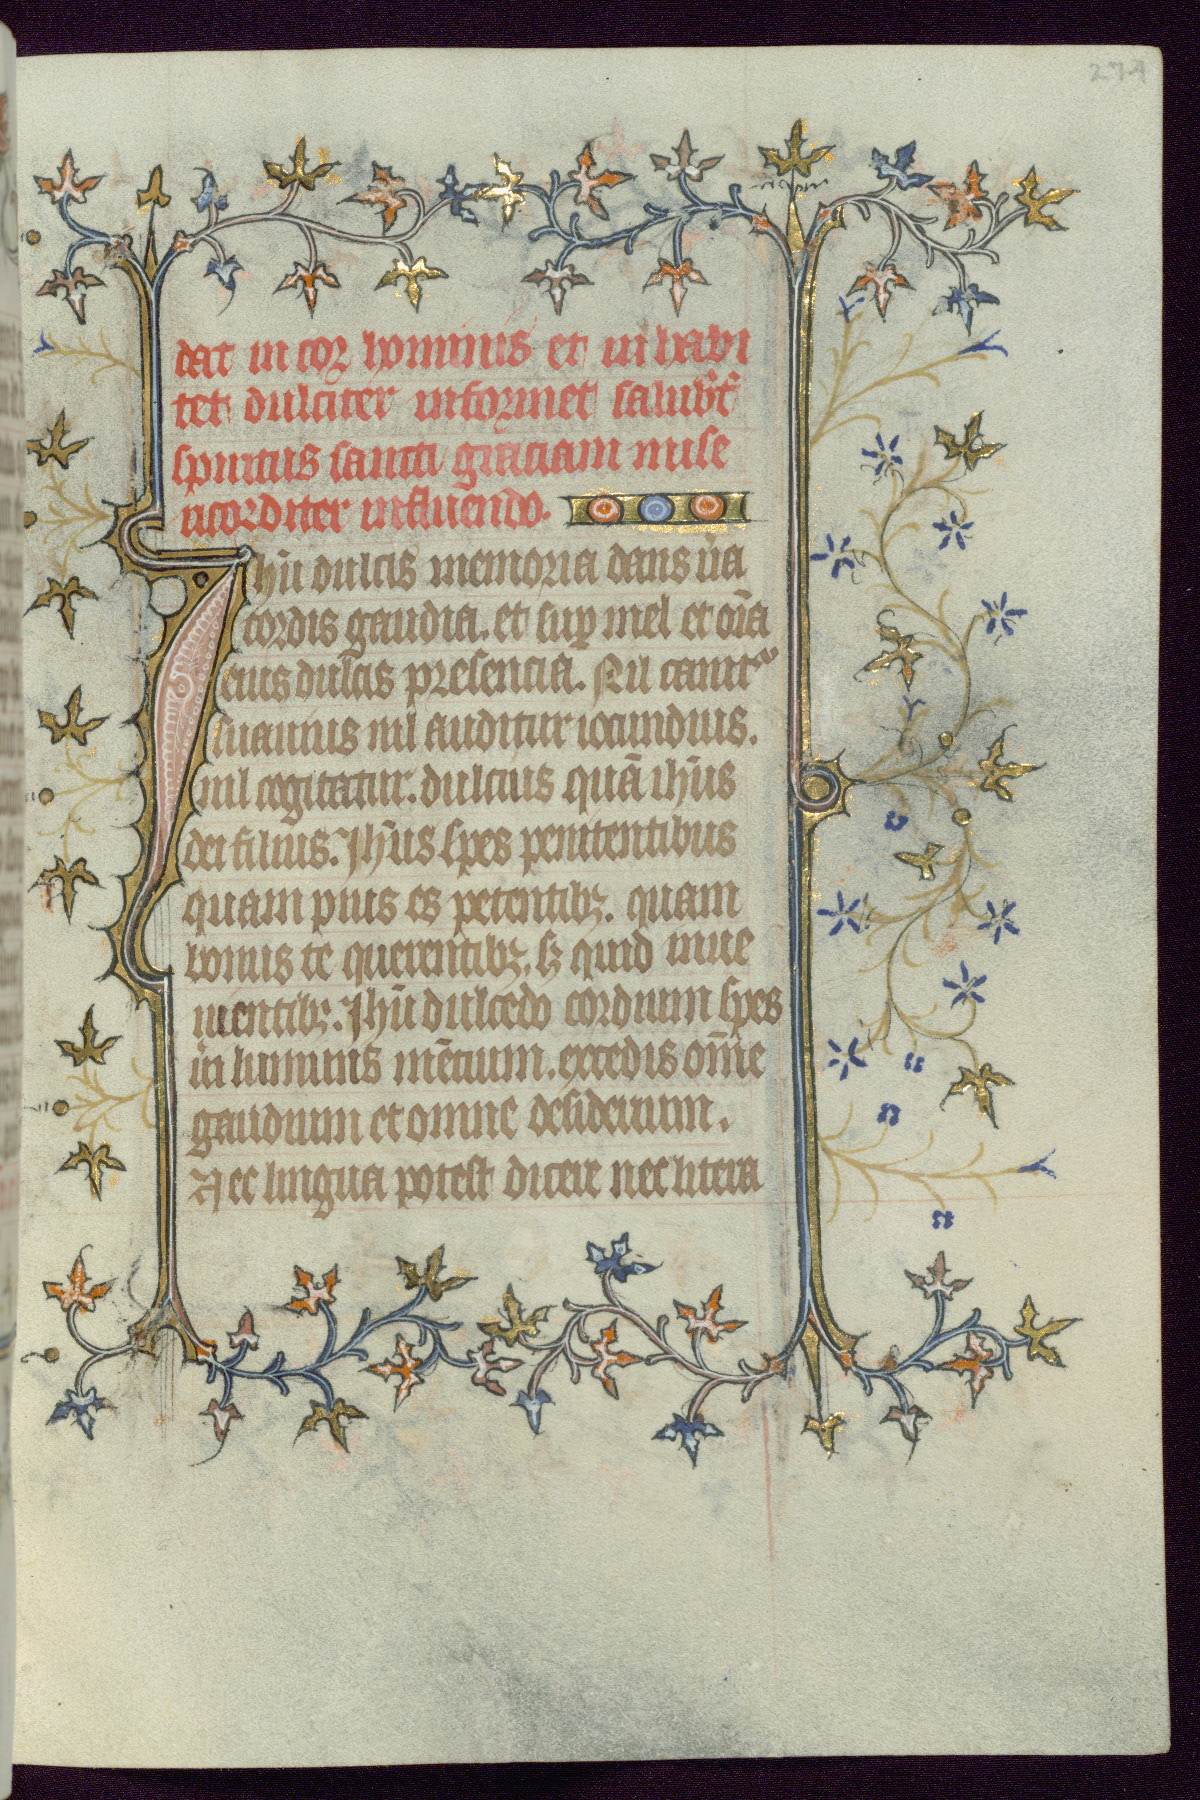 274
dat in cor hominis et inhabi
tet dulciter informet salubr̄
spiritus sancti graciam mise
ricorditer influendo.
Ihū dulcis memoria dans ūa
cordis gaudia. et sup mel et oīa
eius dulcis presenciā. Nil canitr
suauius nil auditur iocundius.
nil cogitatur. dulcius quā ihūs
dei filius. Ihūs spes penitentibus
quam pius es petentibꝫ. quam
bonus te querentibꝫ. sꝫ quid inue
nientibꝫ. Ihū dulcedo cordium spes
in luminis mētium. excedis om̄e
gaudium et omne desiderium.
Nec lingua potest dicere nec litera